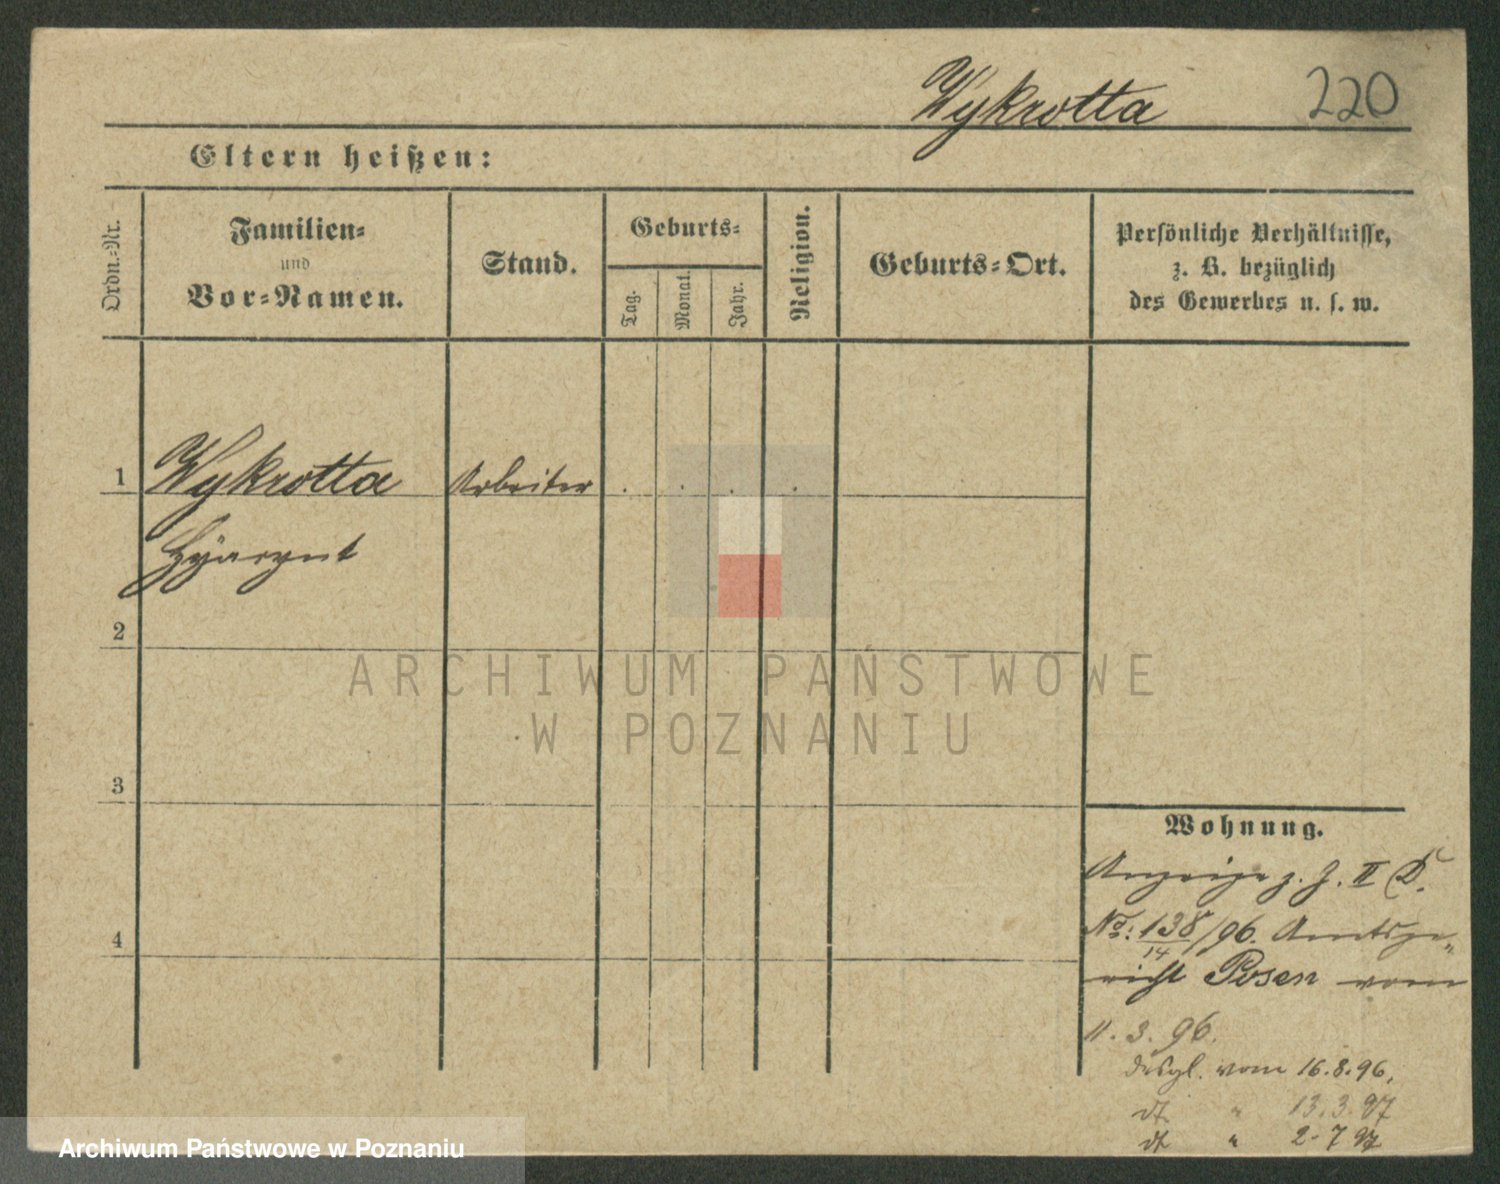 Wykrotta 220
Eltern heißen:
Ordn.-Nr.
Familien-
und
Vor-Namen.
Stand.
Geburts-
Tag.
Monat.
Jahr.
Religion.
Geburts-Ort.
Persönliche Verhältnisse,
z. B. bezüglich
des Gewerbes u. s. w.
1 Wykrotta Arbeiter
2
3
4
Wohnung.
Anzeige z. J. II
No: 138/14/96. Amtsge-
richt Posen vom
11. 3. 96.
desgl. vom 16.8.96.
dt " 13.3.97
dt " 2.7 97
ARCHIWUM PAŃSTWOWE
W POZNANIU
Archiwum Państwowe w Poznaniu